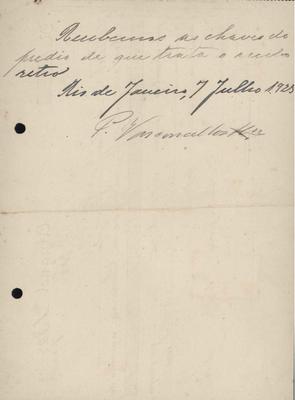 Recebemos as chaves do
predio de que trata o recibo
retro
Rio de Janeiro, 7 Julho 1925
P. Vasconcellos